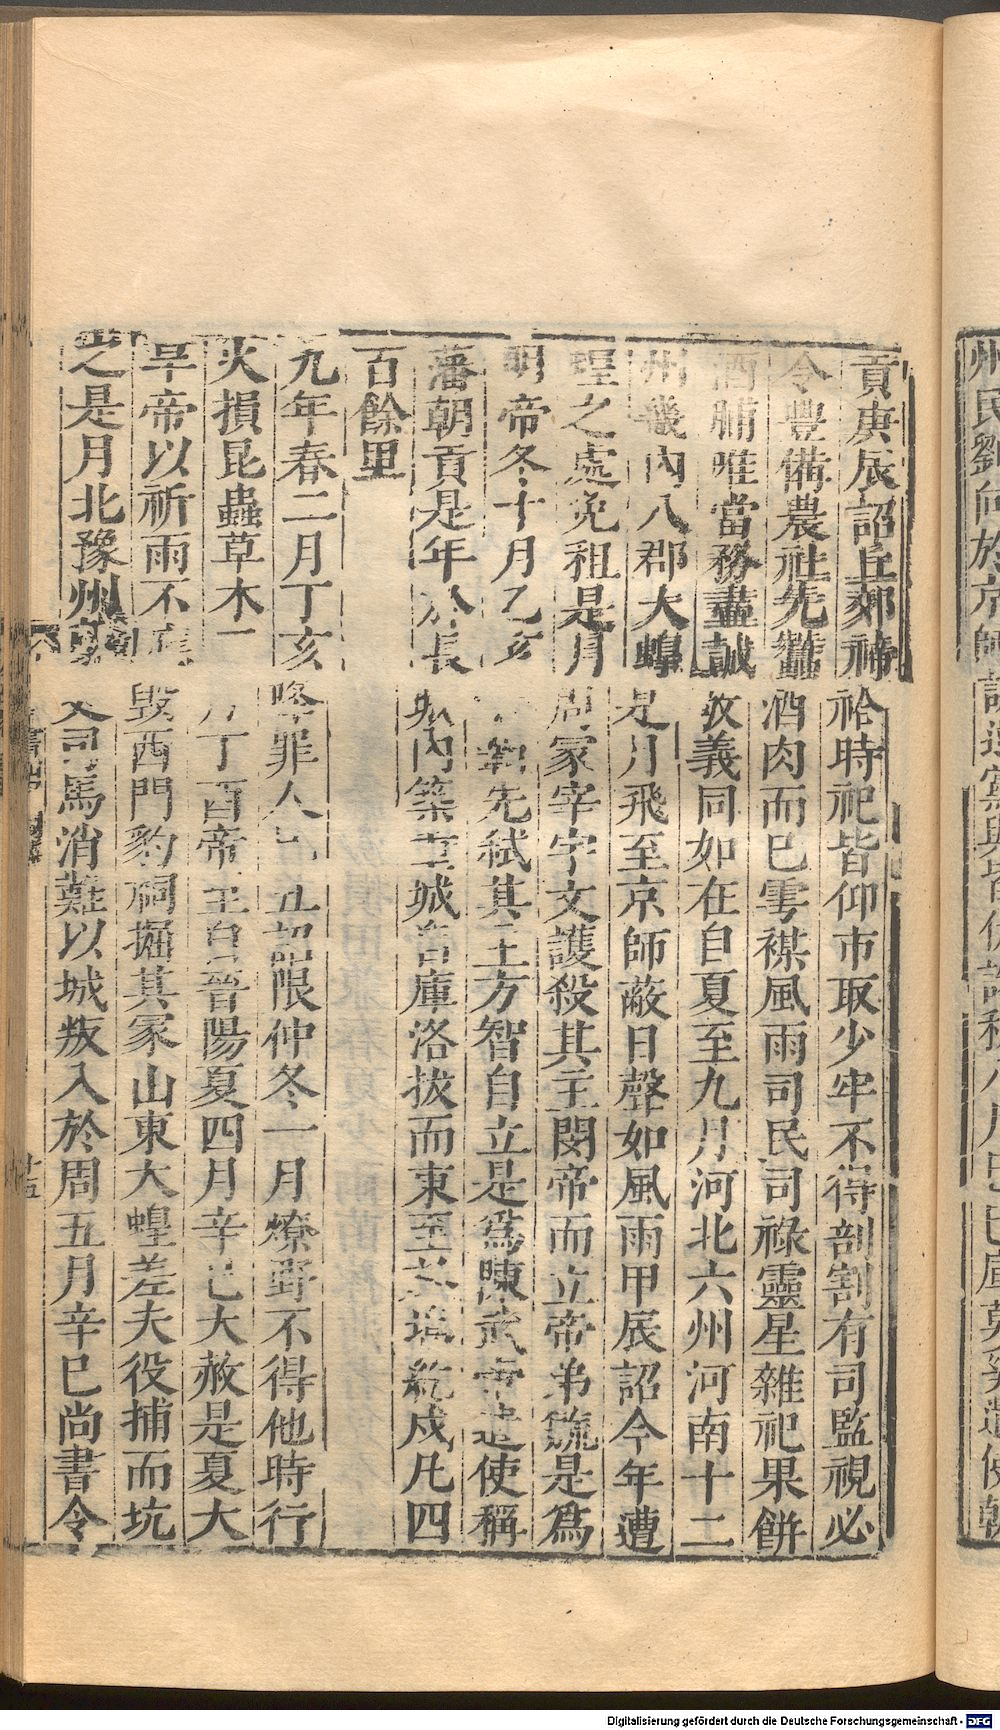 州民劉向於京師謀逆黨與皆伏誅秋八月己巳庫莫奚遣使朝
貢庚辰詔丘郊禘祫時祀皆仰市取少牢不得剖割有司監視必
令豐備農社先蠶酒肉而已雩禖風雨司民司祿靈星雜祀果餅
酒脯唯當務盡誠敬義同如在自夏至九月河北六州河南十二
州畿內八郡大蝗是月飛至京師蔽日聲如風雨甲辰詔今年遭
蝗之處免租是月周冢宰宇文護殺其主閔帝而立帝弟毓是為
明帝冬十月乙亥 霸先弒其主方智自立是為陳武帝遣使稱
藩朝貢是年於長城內築重城自庫洛拔而東至 紇戍凡四
百餘里
九年春二月丁亥降罪人己丑詔限仲冬一月燎野不得他時行
火損昆蟲草木 月丁酉帝至自晉陽夏四月辛巳大赦是夏大
旱帝以祈雨不應毀西門豹祠掘其冢山東大蝗差夫役捕而坑
之是月北豫州 司馬消難以城叛入於周五月辛巳尚書令
十五
Digitalisierung gefördert durch die Deutsche Forschungsgemeinschaft - DFG